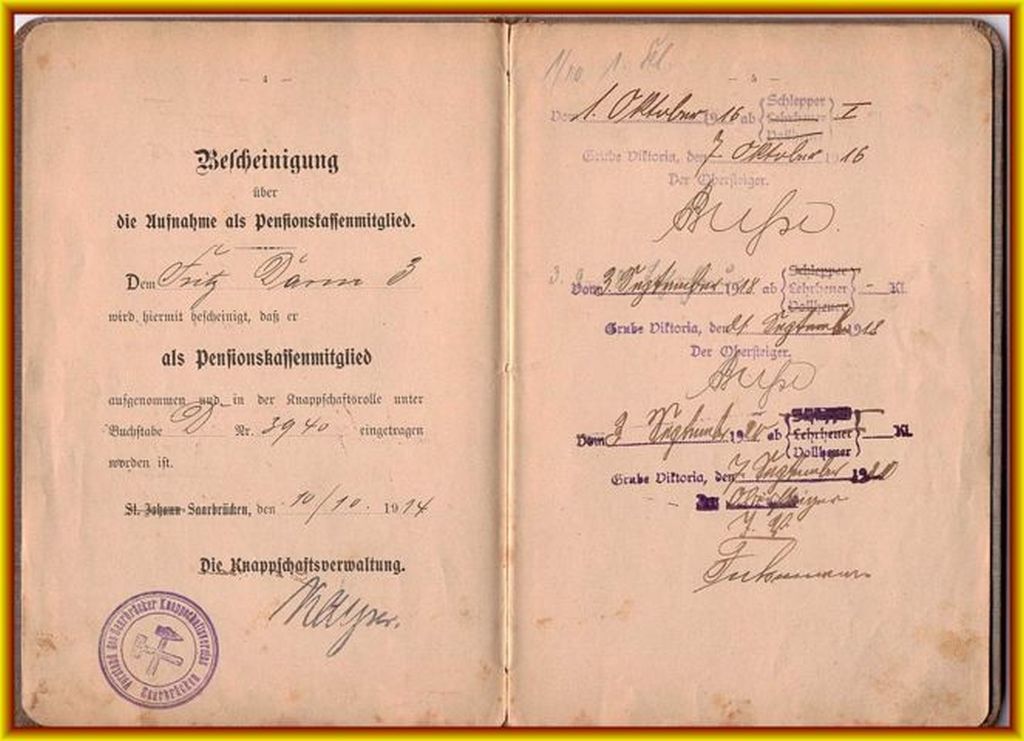 — 4 —
Bescheinigung
über
die Aufnahme als Pensionskassenmitglied.
Dem Fritz Darm 3
wird hiermit bescheinigt, daß er
als Pensionskassenmitglied
aufgenommen und in der Knappschaftsrolle unter
Buchstabe D Nr. 3940 eingetragen
worden ist.
St. Johann-Saarbrücken, den 10/10. 1914
Die Knappschaftsverwaltung.
Mayer.
Vorstand des Saarbrücker Knappschaftsvereins
Saarbrücken
— 5 —
Vom 1. Oktober 1916 ab Schlepper I
Lehrhauer
Vollhauer
Grube Viktoria, den 7. Oktober 1916
Der Obersteiger.
Vom 3. September 1918 ab Schlepper - Kl.
Lehrhauer
Vollhauer
Grube Viktoria, den 21. Septemb 1918
Der Obersteiger.
Vom 3 September 1920 ab Lehrhauer Kl.
Vollhauer
Grube Viktoria, den 7. September 1920
Obersteiger